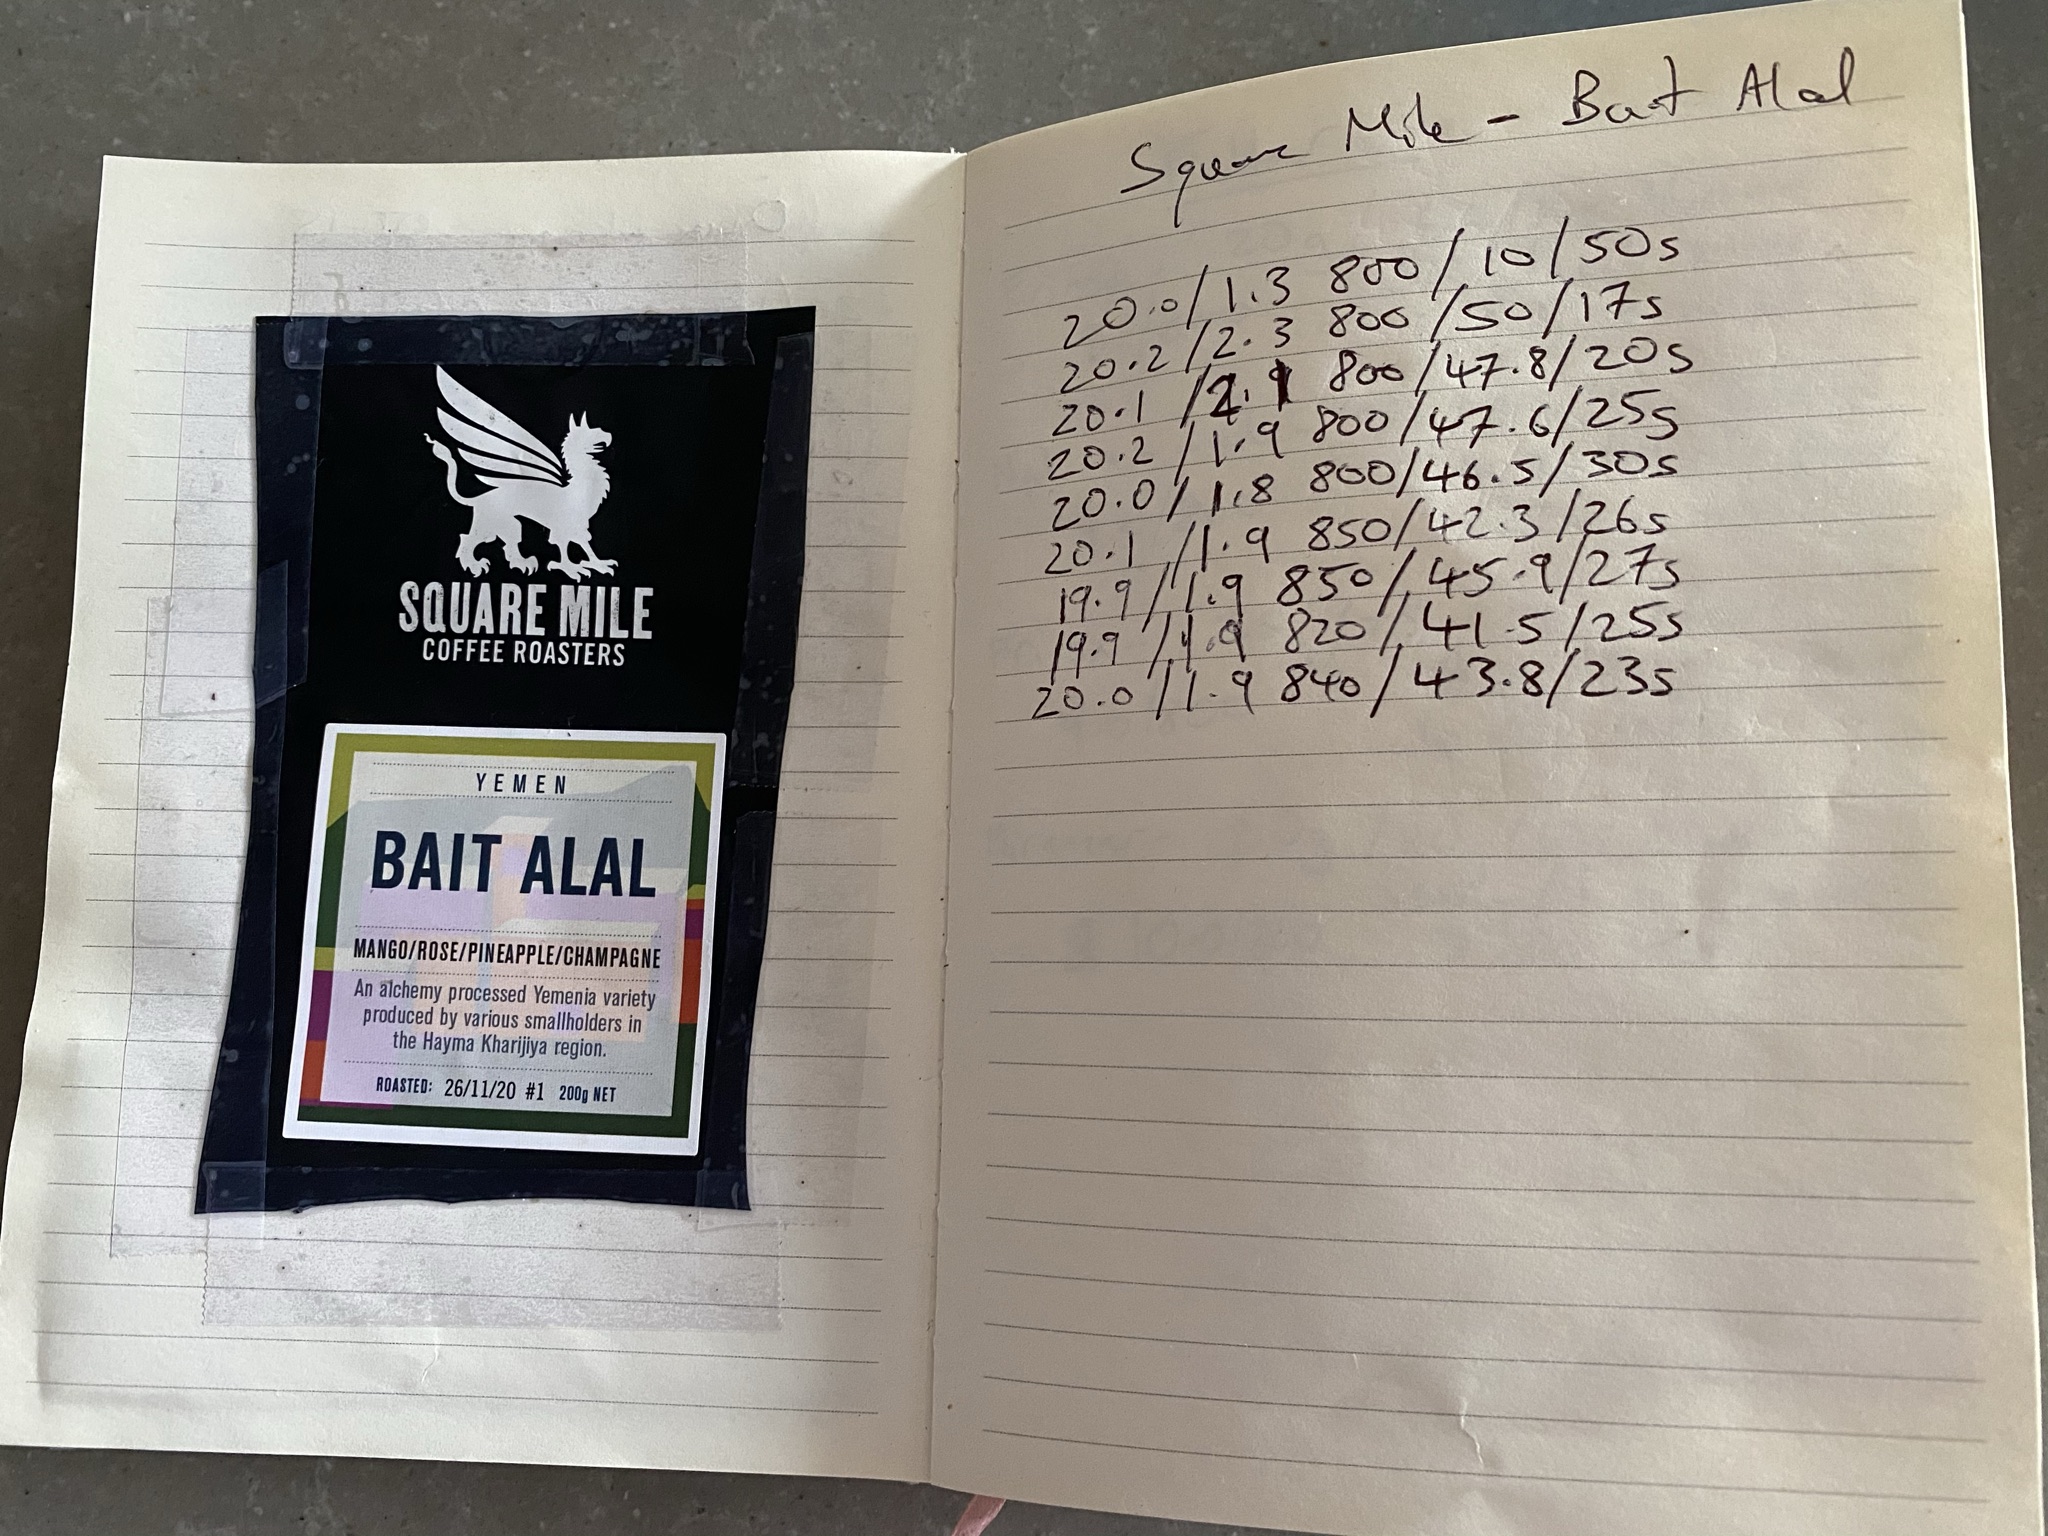 SQUARE MILE
COFFEE ROASTERS
YEMEN
BAIT ALAL
MANGO/ROSE/PINEAPPLE/CHAMPAGNE
An alchemy processed Yemenia variety
produced by various smallholders in
the Hayma Kharijiya region.
ROASTED: 26/11/20 #1 200g NET
Square Mile - Bait Alal
20.0/1.3 800/10/50s
20.2/2.3 800/50/17s
20.1/2.1 800/47.8/20s
20.2/1.9 800/47.6/25s
20.0/1.8 800/46.5/30s
20.1/1.9 850/42.3/26s
19.9/1.9 850/45.9/27s
19.9/1.9 820/41.5/25s
20.0/1.9 840/43.8/23s